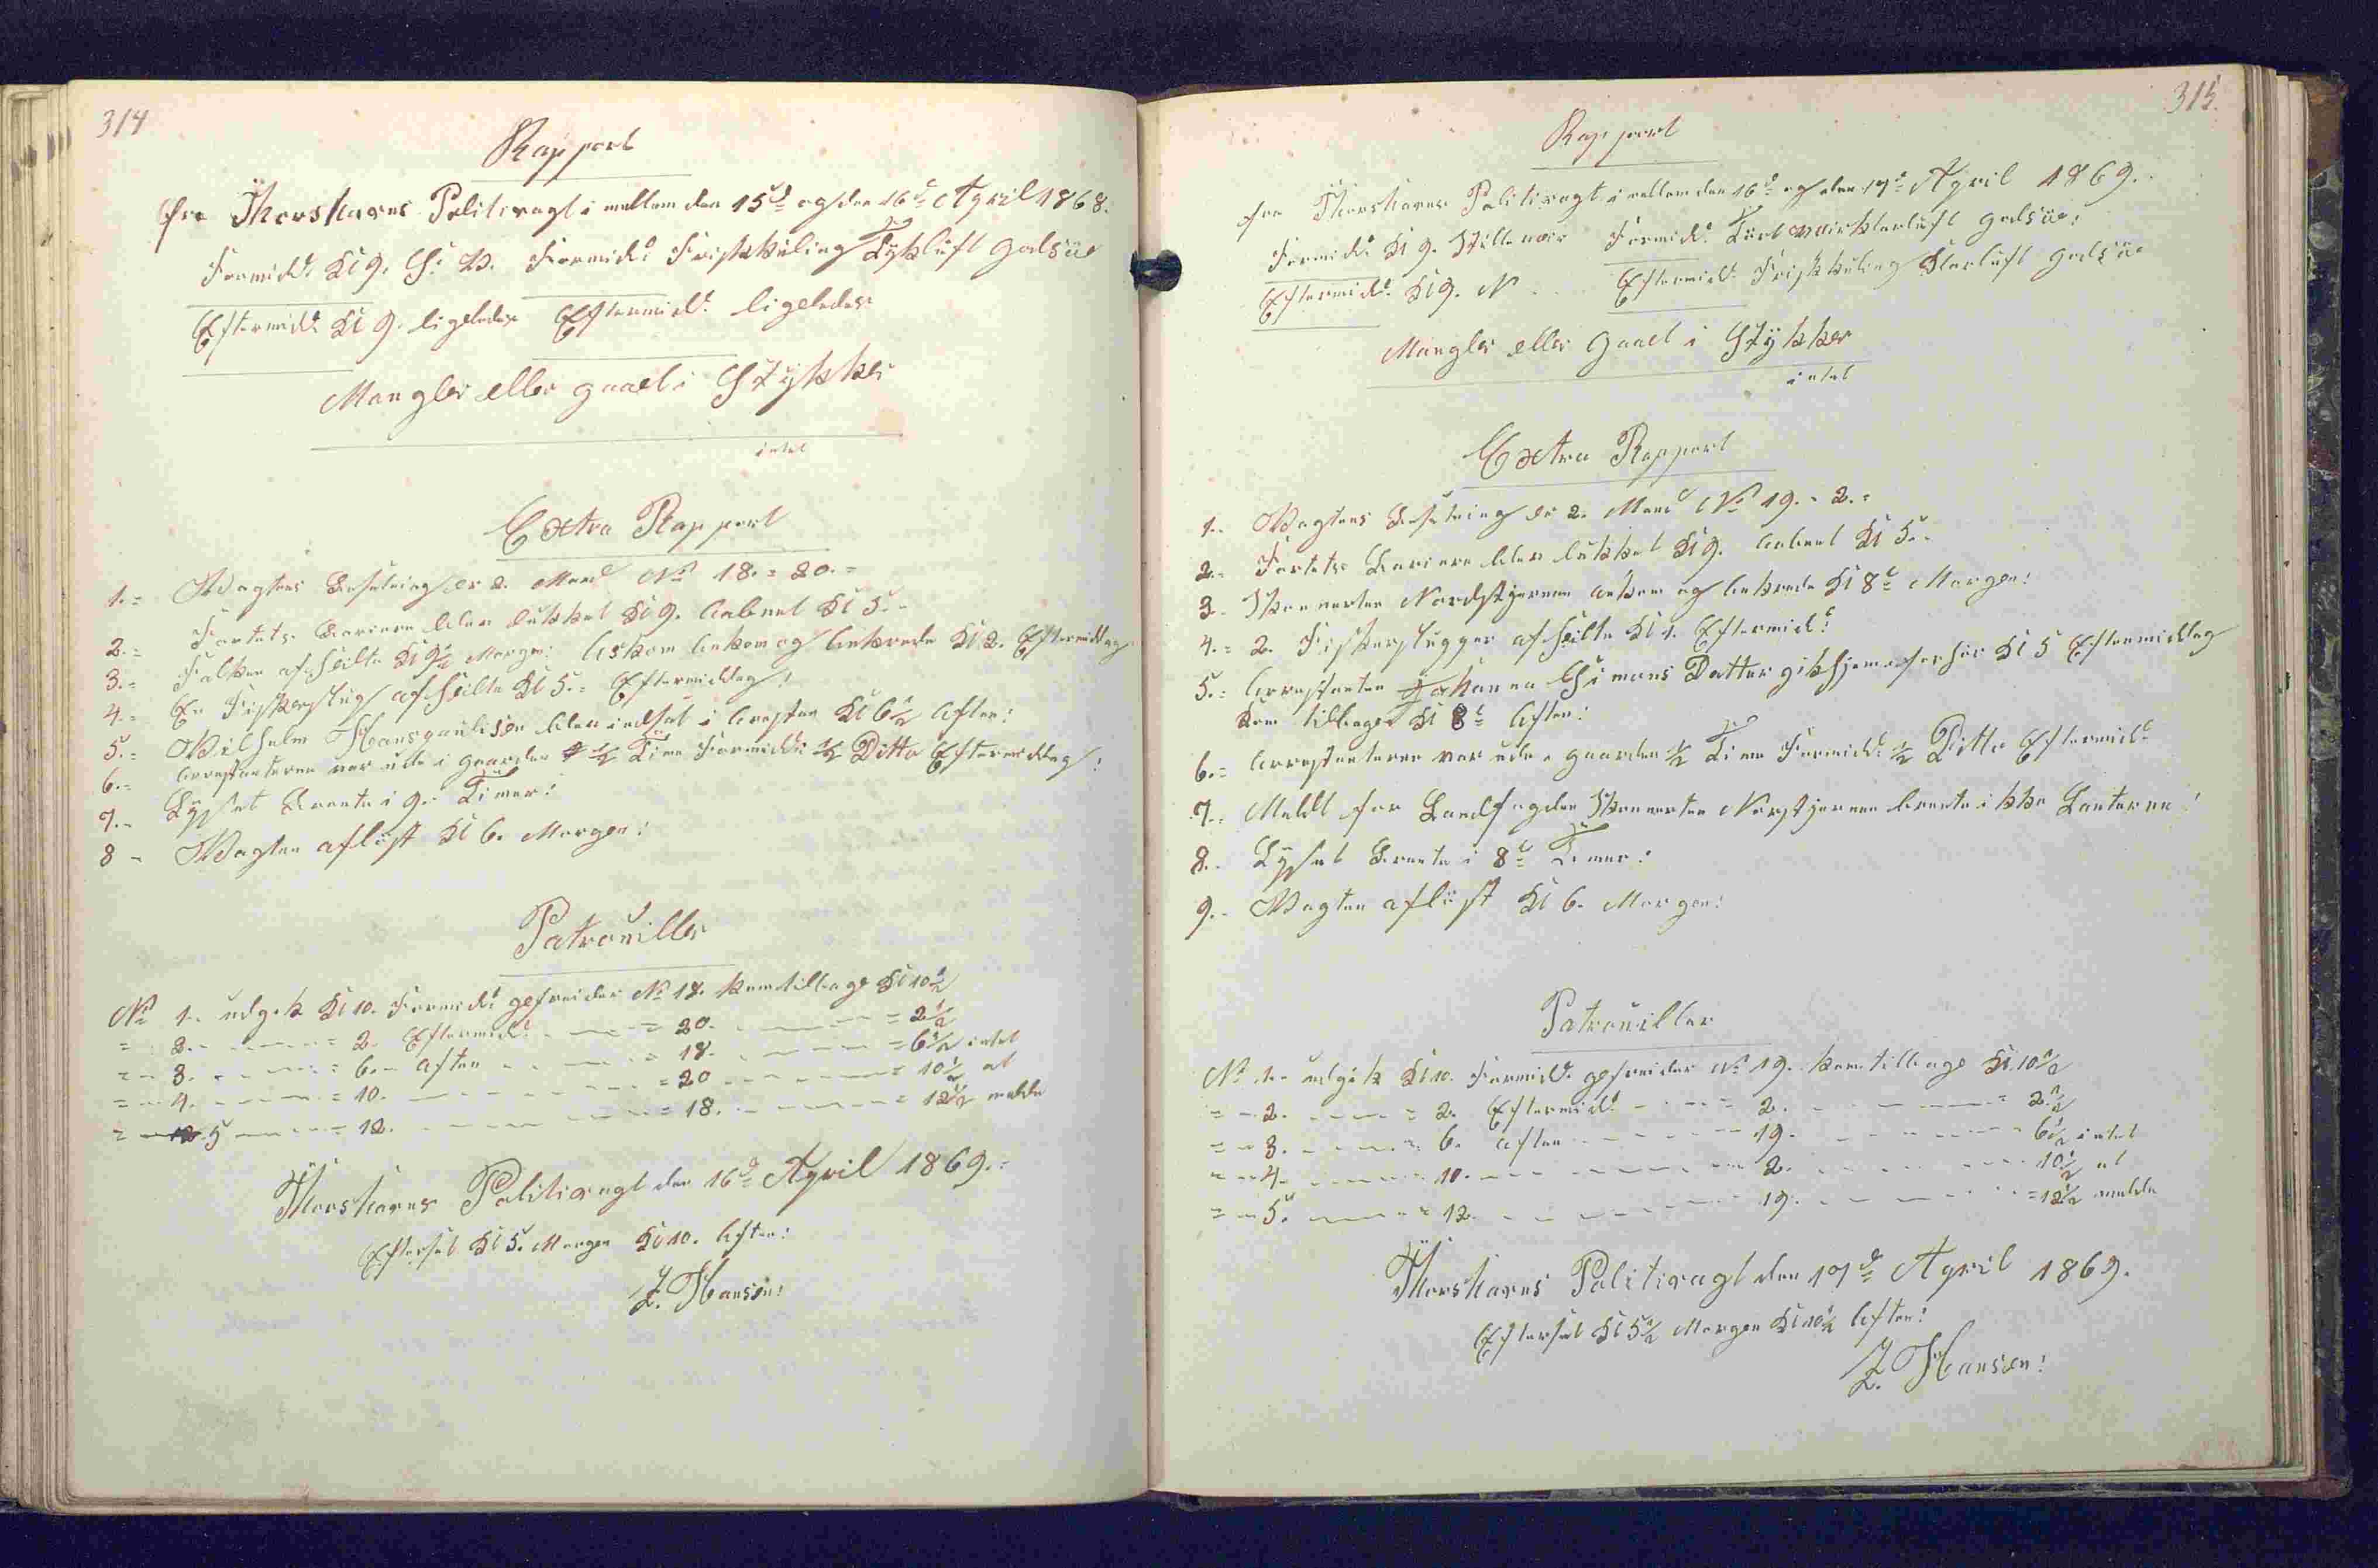 314
Rapport
fra Thorshavns Politivagt i mellem den 15d og den 16d April 1868.
Formidd: Kl 9. S: V. Formidd: Friskkuling Tykluft godsüe
Eftermidd: Kl 9. ligeledes Eftermidd: ligeledes
Mangler eller gaaet i Stykker
intet
Extra Rapport
1.= Vagtens Besetning er 2. Mand No 18. = 20. =
2.= Fortets Bariere blev lukket Kl 9. aabnet Kl 5. -
3.= Falken afseilte Kl 9½ Morgen: Askom ankom og ankrede Kl 2. Eftermiddag
4.= En Fiskerslup afseilte Kl 5. = Eftermiddag!
5.= Vilhelm Hanspaulisen blev indsat i Aresten Kl 6½ Aften:
6.= Arestanterne var ude i gaarden ½ Time Formidd: ½ Ditto Eftermiddag:
7.- Lyset brente i 9. Timer:
8 - Vagten aflöst Kl 6. Morgen:
Patrouiller
No 1. udgik Kl 10. Formidd: gefreider No 18. kom tilbage Kl 10½
= - 2. - = 2. Eftermidd: - = 20. - = 2½
= - 3. - = 6. - Aften - = 18. - = 6½ intet
= - 4. - = 10. - = 20 - = 10½ at
= - 5 - = 12. - = 18. - = 12½ melde
Thorshavns Politivagt den 16d April 1869. =
Efterset Kl 5. Morgen Kl 10. Aften:
Z. Hansen:
315.
Rapport
fra Thorshavns Politivagt i mellem den 16d og den 17d April 1869.
Formidd: Kl 9. Stille Formidd: godsüe:
Eftermidd: Kl 9. N. Eftermidd: Friskkuling Klarluft godsüe
Mangler eller gaaet i Stykker
intet
Extra Rapport
1.- Vagtens Besetning er 2. Mand No 19. - 2. =
2.- Fortets Bariere blev lukket Kl 9. aabnet Kl 5. -
3.- Skonnerten Nordstjernen ankom og ankrede Kl 8 Morgen:
4.= 2. Fiskerslupper afseilte Kl 1. Eftermidd:
5.= Arrestanten Johanna Simons Datter gik hjem forhör Kl 5 Eftermiddag
kom tilbage Kl 8 Aften:
6.= Arrestanterne var ude i gaarden ½ Time Formidd: ½ Ditto Eftermidd:
7.- Meldt for Landfogden Skonnerten Norstjernen brente ikke Lanterne:
8.- Lyset brente i 8 Timer:
9.- Vagten aflöst Kl 6. Morgen:
Patrouiller
No 1.- udgik Kl 10. Formidd. gefreider No 19. kom tilbage Kl 10½
= - 2. - = 2. Eftermidd: - = 2. - = 2½
= - 3. - = 6. Aften - 19. - 6½ intet
= - 4. - 10. - 2. - 10½ at
= - 5. - = 12. - 19. - = 12½ melde
Thorshavns Politivagt den 17d April 1869.
Efterset Kl 5½ Morgen Kl 10½ Aften:
Z. Hansen: